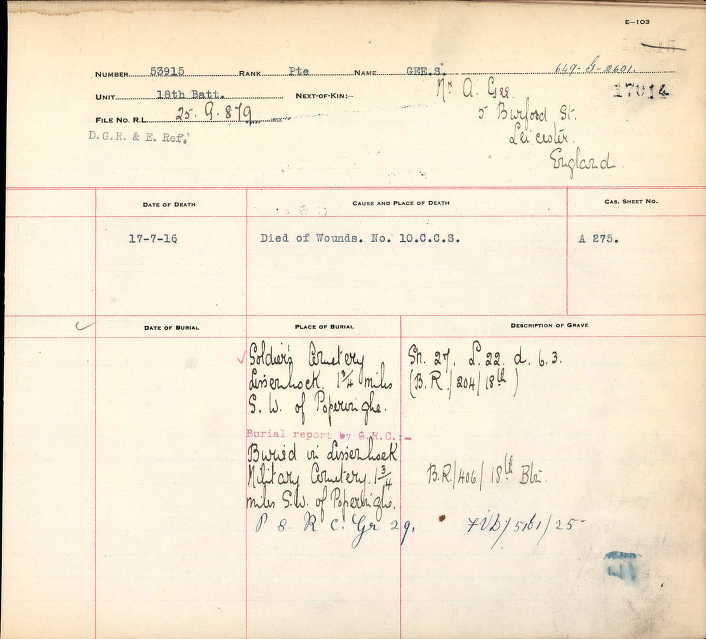 E—103
NUMBER 53915 RANK Pte NAME GEE.S. 649-G-2601.
UNIT 18th Batt. NEXT-OF-KIN:— Mr A. Gee 17014
FILE NO. R.L. 25. G. 879 5 Burford St.
D.G.R. & E. Ref. Leicester.
England.
DATE OF DEATH CAUSE AND PLACE OF DEATH CAS. SHEET NO.
17-7-16 Died of Wounds. No. 10.C.C.S. A 275.
DATE OF BURIAL PLACE OF BURIAL DESCRIPTION OF GRAVE
Soldier's Cemetery Sh. 27. L. 22. d. 6. 3.
Lissenhoek. 1 3/4 miles (B.R./204/18th)
S. W. of Poperinghe.
Burial report by G.R.C.:—
Buried in Lissenhoek
Military Cemetery. 1 3/4 B.R/406/18th Btn.
miles S.W. of Poperinghe.
P 8. R C. Gr 29.